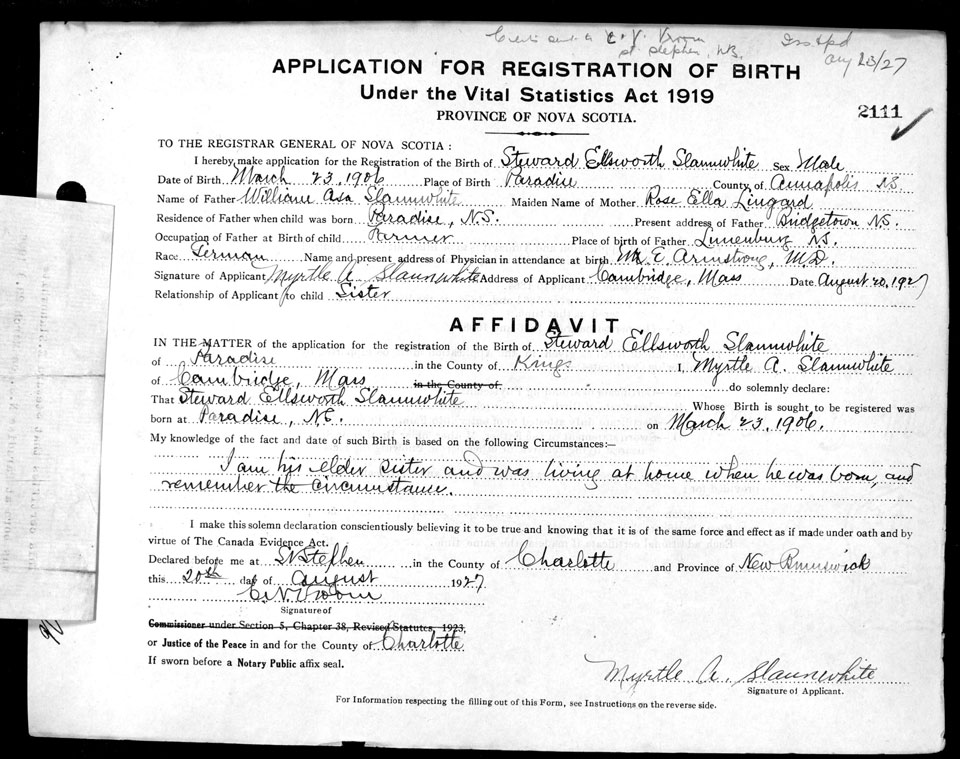 St Stephen, N.B.
Aug 23/27
APPLICATION FOR REGISTRATION OF BIRTH
Under the Vital Statistics Act 1919
PROVINCE OF NOVA SCOTIA.
2111
TO THE REGISTRAR GENERAL OF NOVA SCOTIA :
I hereby make application for the Registration of the Birth of Steward Ellsworth Slaunwhite Sex Male
Date of Birth March 23, 1906 Place of Birth Paradise County of Annapolis N.S.
Name of Father William Asa Slaunwhite Maiden Name of Mother Rose Ella Lingard
Residence of Father when child was born Paradise, N.S. Present address of Father Bridgetown N.S.
Occupation of Father at Birth of child Farmer Place of birth of Father Lunenburg N.S.
Race German Name and present address of Physician in attendance at birth E. Armstrong, M.D.
Signature of Applicant Myrtle A Slaunwhite Address of Applicant Cambridge, Mass Date August 20, 1927
Relationship of Applicant to child Sister
AFFIDAVIT
IN THE MATTER of the application for the registration of the Birth of Steward Ellsworth Slaunwhite
of Paradise in the County of Kings I, Myrtle A. Slaunwhite
of Cambridge, Mass in the County of do solemnly declare:
That Steward Ellsworth Slaunwhite Whose Birth is sought to be registered was
born at Paradise, N.S. on March 23, 1906.
My knowledge of the fact and date of such Birth is based on the following Circumstances:—
I am his elder sister and was living at home when he was born, and
remember the circumstance.
I make this solemn declaration conscientiously believing it to be true and knowing that it is of the same force and effect as if made under oath and by
virtue of The Canada Evidence Act.
Declared before me at St Stephen in the County of Charlotte and Province of New Brunswick
this 20th day of August 1927
C. N. Vroom
Signature of
Commissioner under Section 5, Chapter 38, Revised Statutes, 1923,
or Justice of the Peace in and for the County of Charlotte
If sworn before a Notary Public affix seal.
Myrtle A. Slaunwhite
Signature of Applicant.
For Information respecting the filling out of this Form, see Instructions on the reverse side.